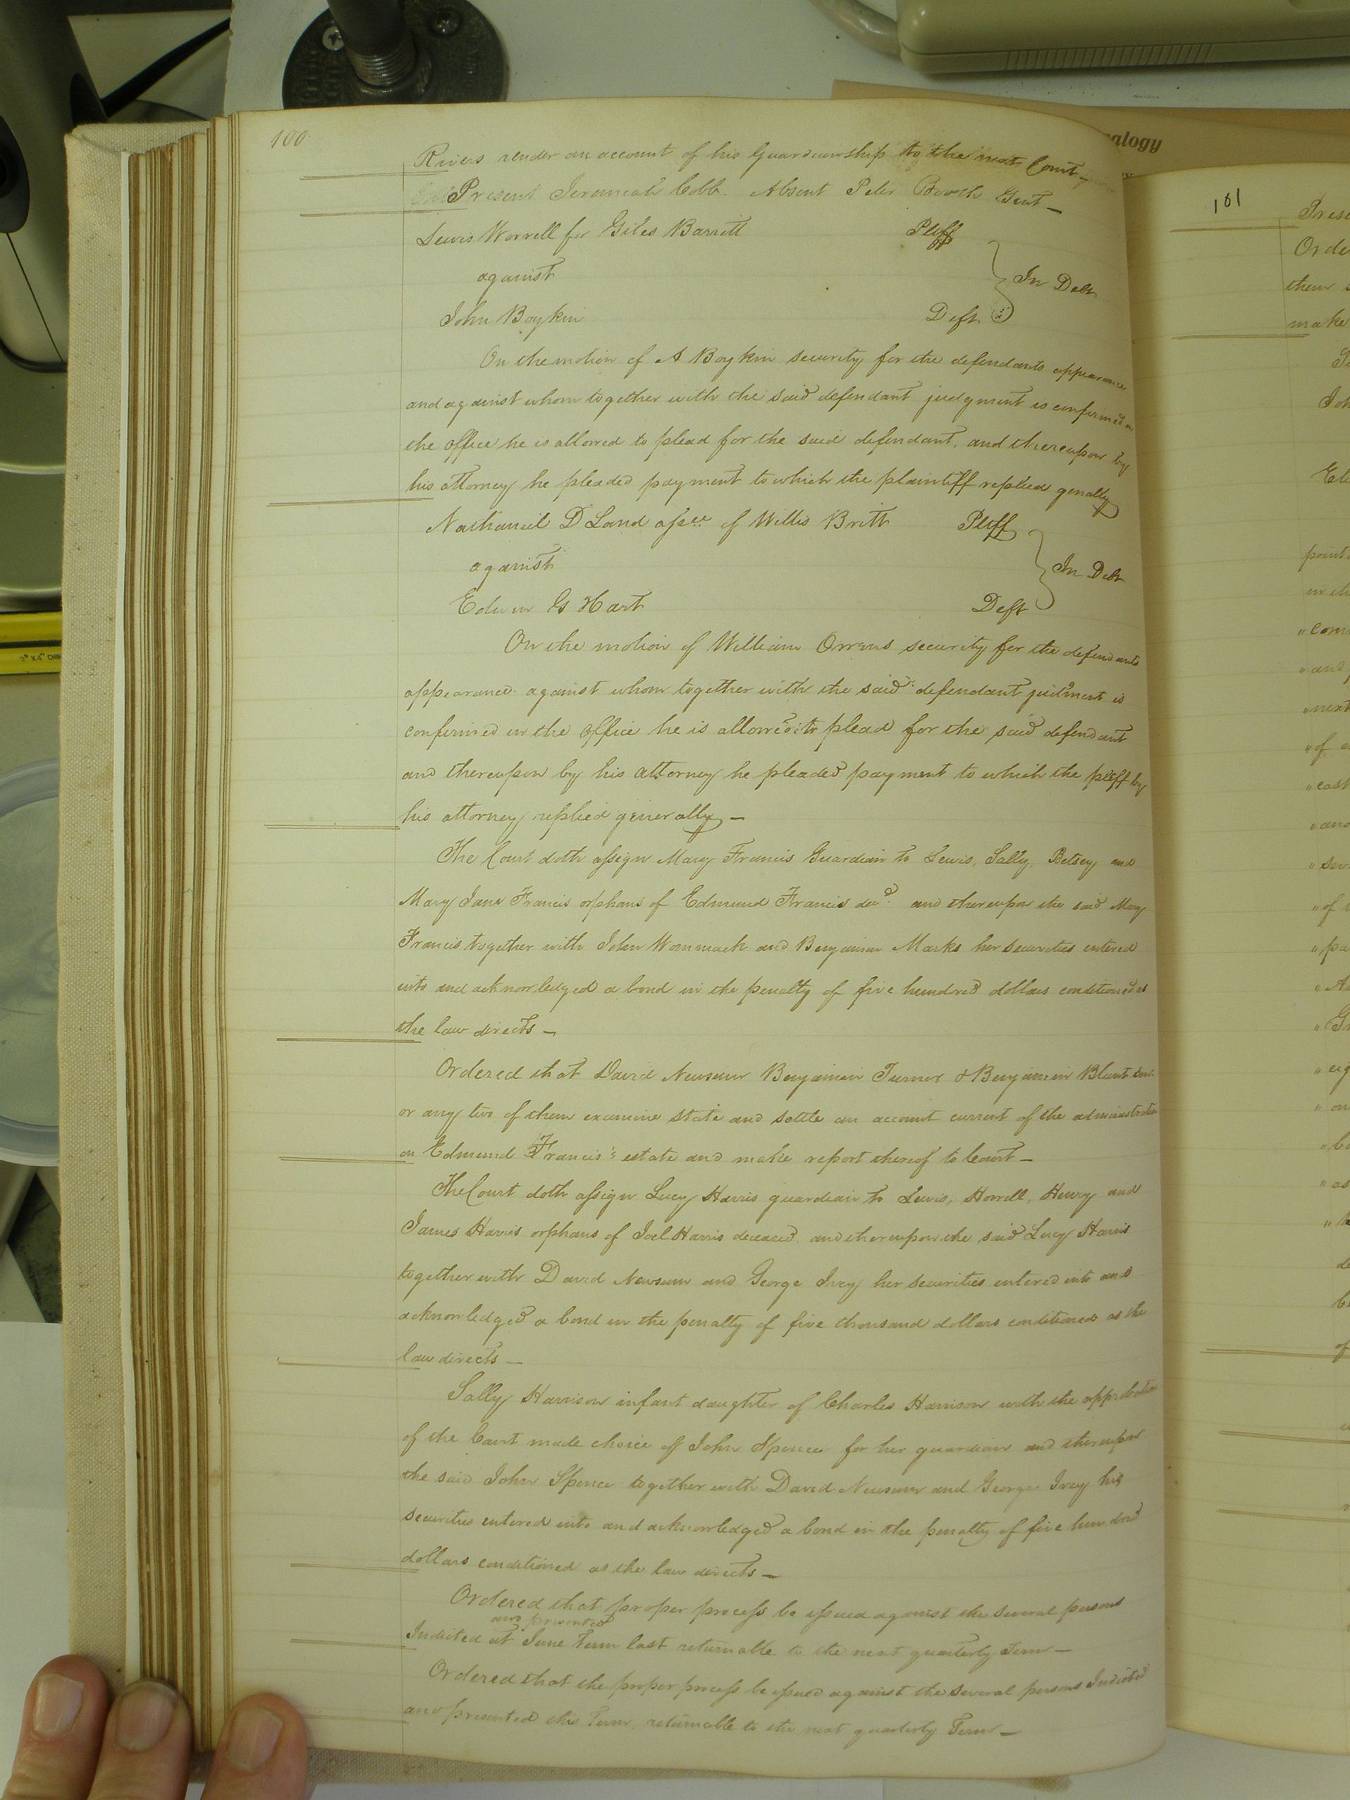 100
Rivers render an account of his Guardianship to the next Court
Present Jeremiah Cobb Absent Peter Booth Gent
Lewis Worrell for Giles Barrett Pltff
against In Debt
John Boykin Deft
On the motion of A Boykin security for the defendants appearance
and against whom together with the said defendant judgment is confirmed in
the office he is allowed to plead for the said defendant, and thereupon by
his attorney he pleaded payment to which the plaintiff replied genally
Nathaniel D Land assee of Willis Britt Pltff
against In Debt
Edwin G Hart Deft
On the motion of William Owens security for the defendants
appearance against whom together with the said defendant judment is
confirmed in the office he is allowed to plead for the said defendant
and thereupon by his attorney he pleaded payment to which the pltff by
his attorney replied generally
The Court doth assign Mary Francis Guardian to Lewis, Sally, Betsey and
Mary Jane Francis orphans of Edmund Francis decd. and thereupon the said Mary
Francis together with John Wommack and Benjamin Marks her securities entered
into and acknowledged a bond in the penalty of five hundred dollars conditioned as
the law directs
Ordered that David Newsum Benjamin Turner & Benjamin Blunt
or any two of them examine state and settle an account current of the administration
on Edmund Francis's estate and make report thereof to Court
The Court doth assign Lucy Harris guardian to Lewis, Howell, Henry and
James Harris orphans of Joel Harris deceased and thereupon the said Lucy Harris
together with David Newsum and George Ivey her securities entered into and
acknowledged a bond in the penalty of five thousand dollars conditioned as the
law directs
Sally Harrison infant daughter of Charles Harrison with the approbation
of the Court made choice of John Spence for her guardian and thereupon
the said John Spence together with David Newsum and George Ivey his
securities entered into and acknowledged a bond in the penalty of five hundred
dollars conditioned as the law directs
Ordered that proper process be issued against the several persons
and presented
Indicted at June term last returnable to the next quarterly Term
Ordered that the proper process be issued against the several persons Indicted
and presented this Term, returnable to the next quarterly Term
101
Orde
make
next
and
alogy